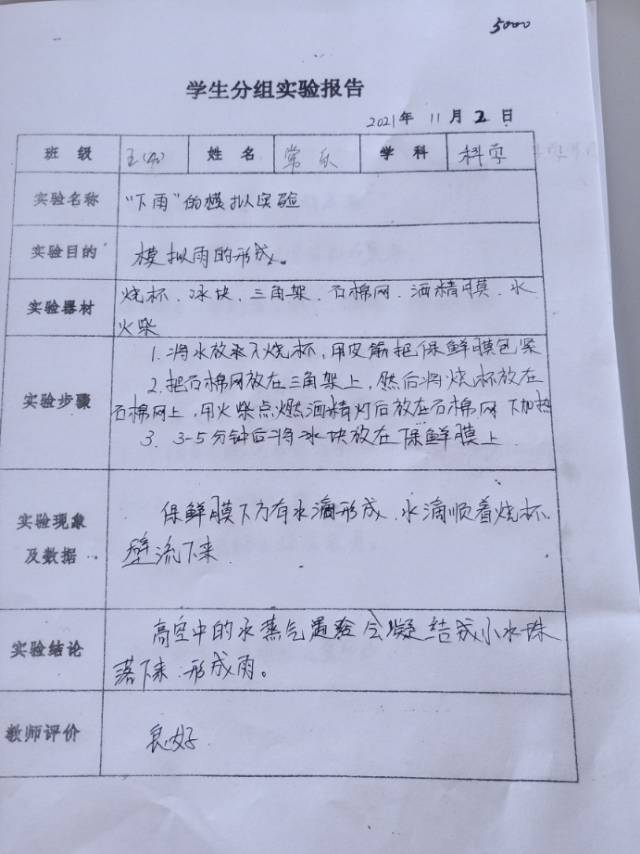 5000
学生分组实验报告
2021年 11月 2日
班 级 五(4) 姓 名 常 学 科 科学
实验名称 "下雨"的模拟实验
实验目的 模拟雨的形成。
实验器材 烧杯、冰块、三角架、石棉网、酒精膜、水
火柴
实验步骤 1. 将水放入烧杯,用皮筋把保鲜膜包紧
2. 把石棉网放在三角架上,然后将烧杯放在
石棉网上,用火柴点燃酒精灯后放在石棉网下加热
3. 3-5分钟后将冰块放在保鲜膜上
实验现象及数据 保鲜膜下方有水滴形成,水滴顺着烧杯
壁流下来
实验结论 高空中的水蒸气遇冷会凝结成小水珠
落下来 形成雨。
教师评价 良好